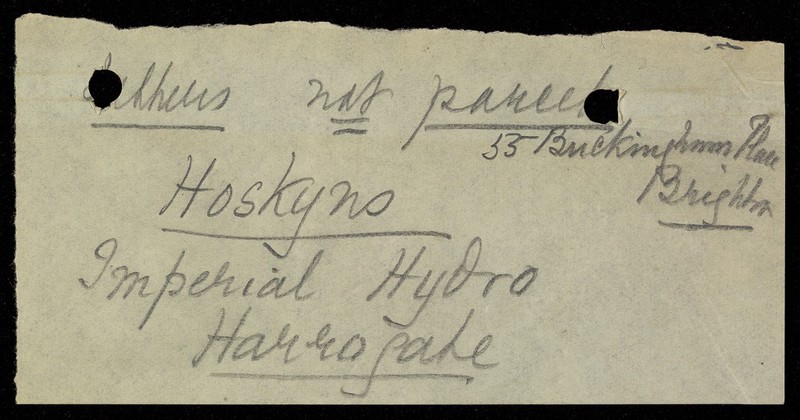 Letters not parcels
55 Buckingham Place
Brighton
Hoskyns
Imperial Hydro
Harrogate